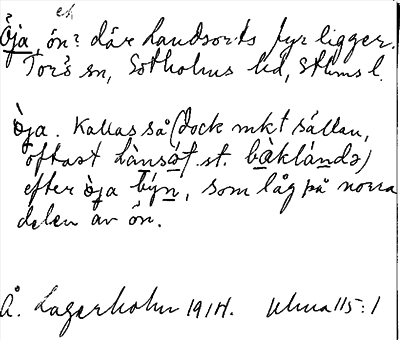 eh
Ȯ́ja, ön? där Landsorts fyr ligger.
Torö sn, Sotholms hd, Sthms l.
ò̤ja. Kallas så (dock mkt sällan,
oftast lànsǻt. st. bàklándə)
efter ò̤ja býn, som låg på norra
delen av ön.
Å. Lagerholm 1914. Ulma 115:1